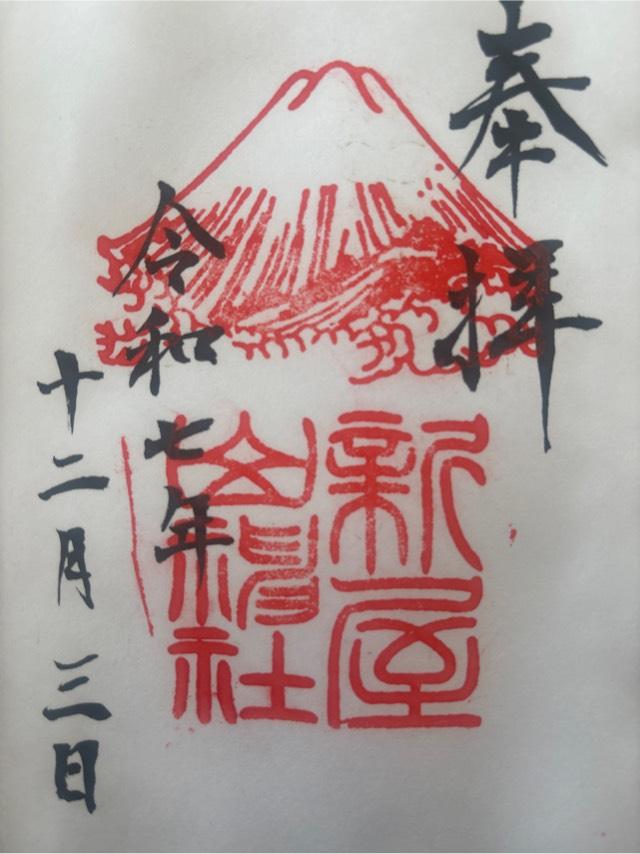 奉拝
新屋
山神社
令和七年
十二月三日